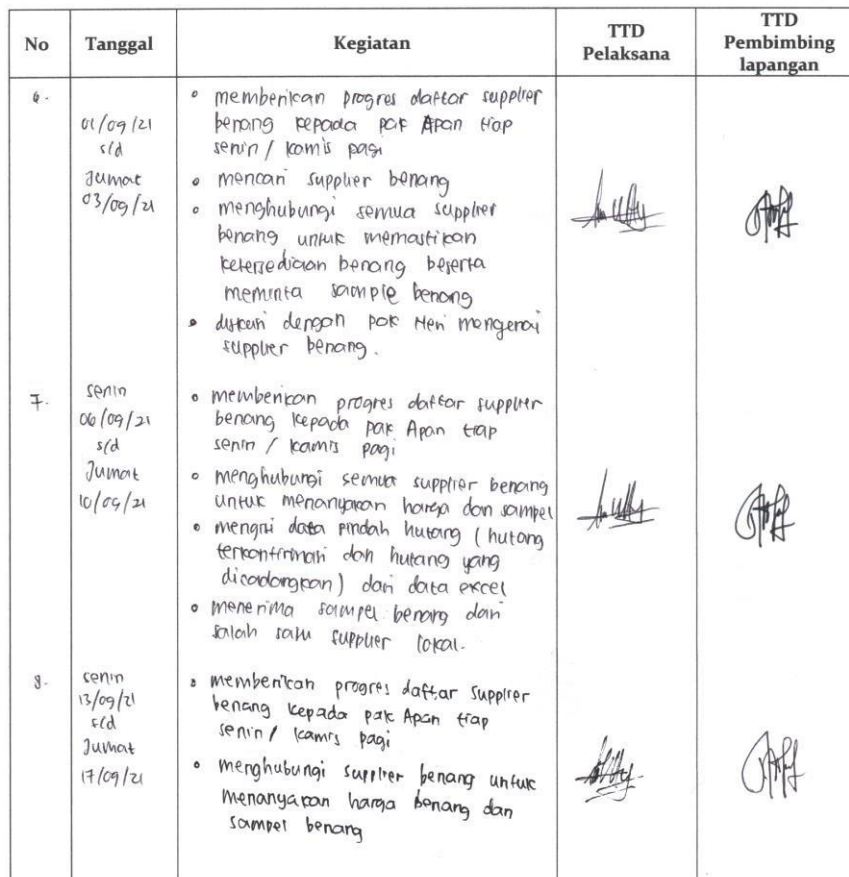 No Tanggal Kegiatan TTD Pelaksana TTD Pembimbing lapangan
6.
01/09/21
s/d
Jumat
03/09/21
• memberikan progres daftar supplier
benang kepada pak Apan tiap
senin / kamis pagi
• mencari supplier benang
• menghubungi semua supplier
benang untuk memastikan
ketersediaan benang beserta
meminta sample benang
• diskusi dengan pak Heri mengenai
supplier benang.
7.
senin
06/09/21
s/d
Jumat
10/09/21
• memberikan progres daftar supplier
benang kepada pak Apan tiap
senin / kamis pagi
• menghubungi semua supplier benang
untuk menanyakan harga dan sampel
• mengisi data pindah hutang (hutang
terkonfirmasi dan hutang yang
dicadangkan) dari data excel
• menerima sampel benang dari
salah satu supplier lokal.
8.
senin
13/09/21
s/d
Jumat
17/09/21
• memberikan progres daftar supplier
benang kepada pak Apan tiap
senin / kamis pagi
• menghubungi supplier benang untuk
menanyakan harga benang dan
sampel benang